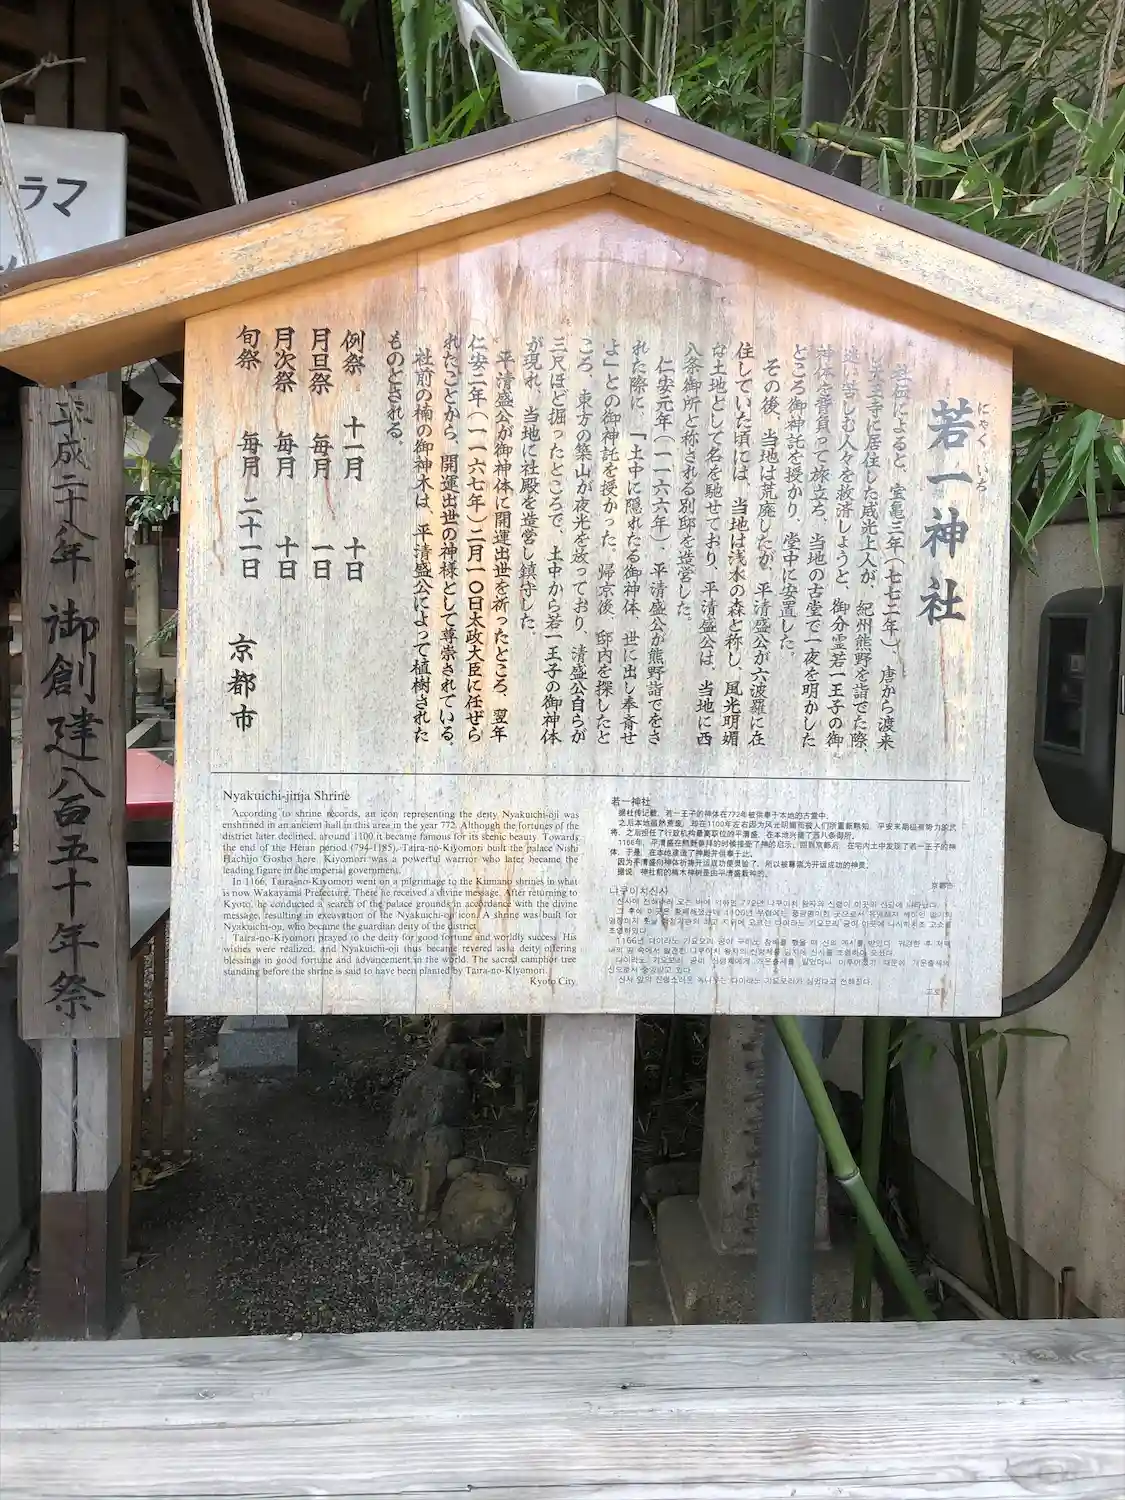 若一神社
にゃく いち
社伝によると、宝亀三年(七七二年)、唐から渡来
し天王寺に居住した威光上人が、紀州熊野を詣でた際、
迷い苦しむ人々を救済しようと、御分霊若一王子の御
神体を背負って旅立ち、当地の古堂で一夜を明かした
ところ御神託を授かり、堂中に安置した。
その後、当地は荒廃したが、平清盛公が六波羅に在
住していた頃には、当地は浅水の森と称し、風光明媚
な土地として名を馳せており、平清盛公は、当地に西
八条御所と称される別邸を造営した。
仁安元年(一一六六年)、平清盛公が熊野詣でをさ
れた際に、「土中に隠れたる御神体、世に出し奉斎せ
よ」との御神託を授かった。帰京後、邸内を探したと
ころ、東方の築山が夜光を放っており、清盛公自らが
三尺ほど掘ったところで、土中から若一王子の御神体
が現れ、当地に社殿を造営し鎮守した。
平清盛公が御神体に開運出世を祈ったところ、翌年
仁安二年(一一六七年)二月一〇日太政大臣に任ぜら
れたことから、開運出世の神様として尊崇されている。
社前の楠の御神木は、平清盛公によって植樹された
ものとされる。
例祭 十一月 十日
月旦祭 毎月 一日
月次祭 毎月 十日
旬祭 毎月 二十一日
京都市
Nyakuichi-jinja Shrine
According to shrine records, an icon representing the deity Nyakuichi-oji was
enshrined in an ancient hall in this area in the year 772. Although the fortunes of the
district later declined, around 1100 it became famous for its scenic beauty. Towards
the end of the Heian period (794-1185), Taira-no-Kiyomori built the palace Nishi
Hachijo Gosho here. Kiyomori was a powerful warrior who later became the
leading figure in the imperial government.
In 1166, Taira-no-Kiyomori went on a pilgrimage to the Kumano shrines in what
is now Wakayama Prefecture. There he received a divine message. After returning to
Kyoto, he conducted a search of the palace grounds in accordance with the divine
message, resulting in excavation of the Nyakuichi-oji icon. A shrine was built for
Nyakuichi-oji, who became the guardian deity of the district.
Taira-no-Kiyomori prayed to the deity for good fortune and worldly success. His
wishes were realized, and Nyakuichi-oji thus became revered as a deity offering
blessings in good fortune and advancement in the world. The sacred camphor tree
standing before the shrine is said to have been planted by Taira-no-Kiyomori.
Kyoto City
若一神社
据社传记载，若一王子的神体在772年被供奉于本地的古堂中。
之后本地虽然荒废，却在1100年左右因为风光明媚而被人们所重新熟知。平安末期极有势力的武
将、之后担任了行政机构最高职位的平清盛，在本地兴建了西八条御所。
1166年，平清盛在熊野参拜的时候接受了神的启示。回到京都后，在宅内土中发现了若一王子的神
体。于是，在本地建造了神殿并供奉于此。
因为平清盛向神体祈祷开运成功便灵验了，所以被尊崇为开运成功的神灵。
据说，神社前的楠木神树是由平清盛栽种的。
京都市
나쿠이치신사
平成二十八年 御創建八百五十年祭
ラマ